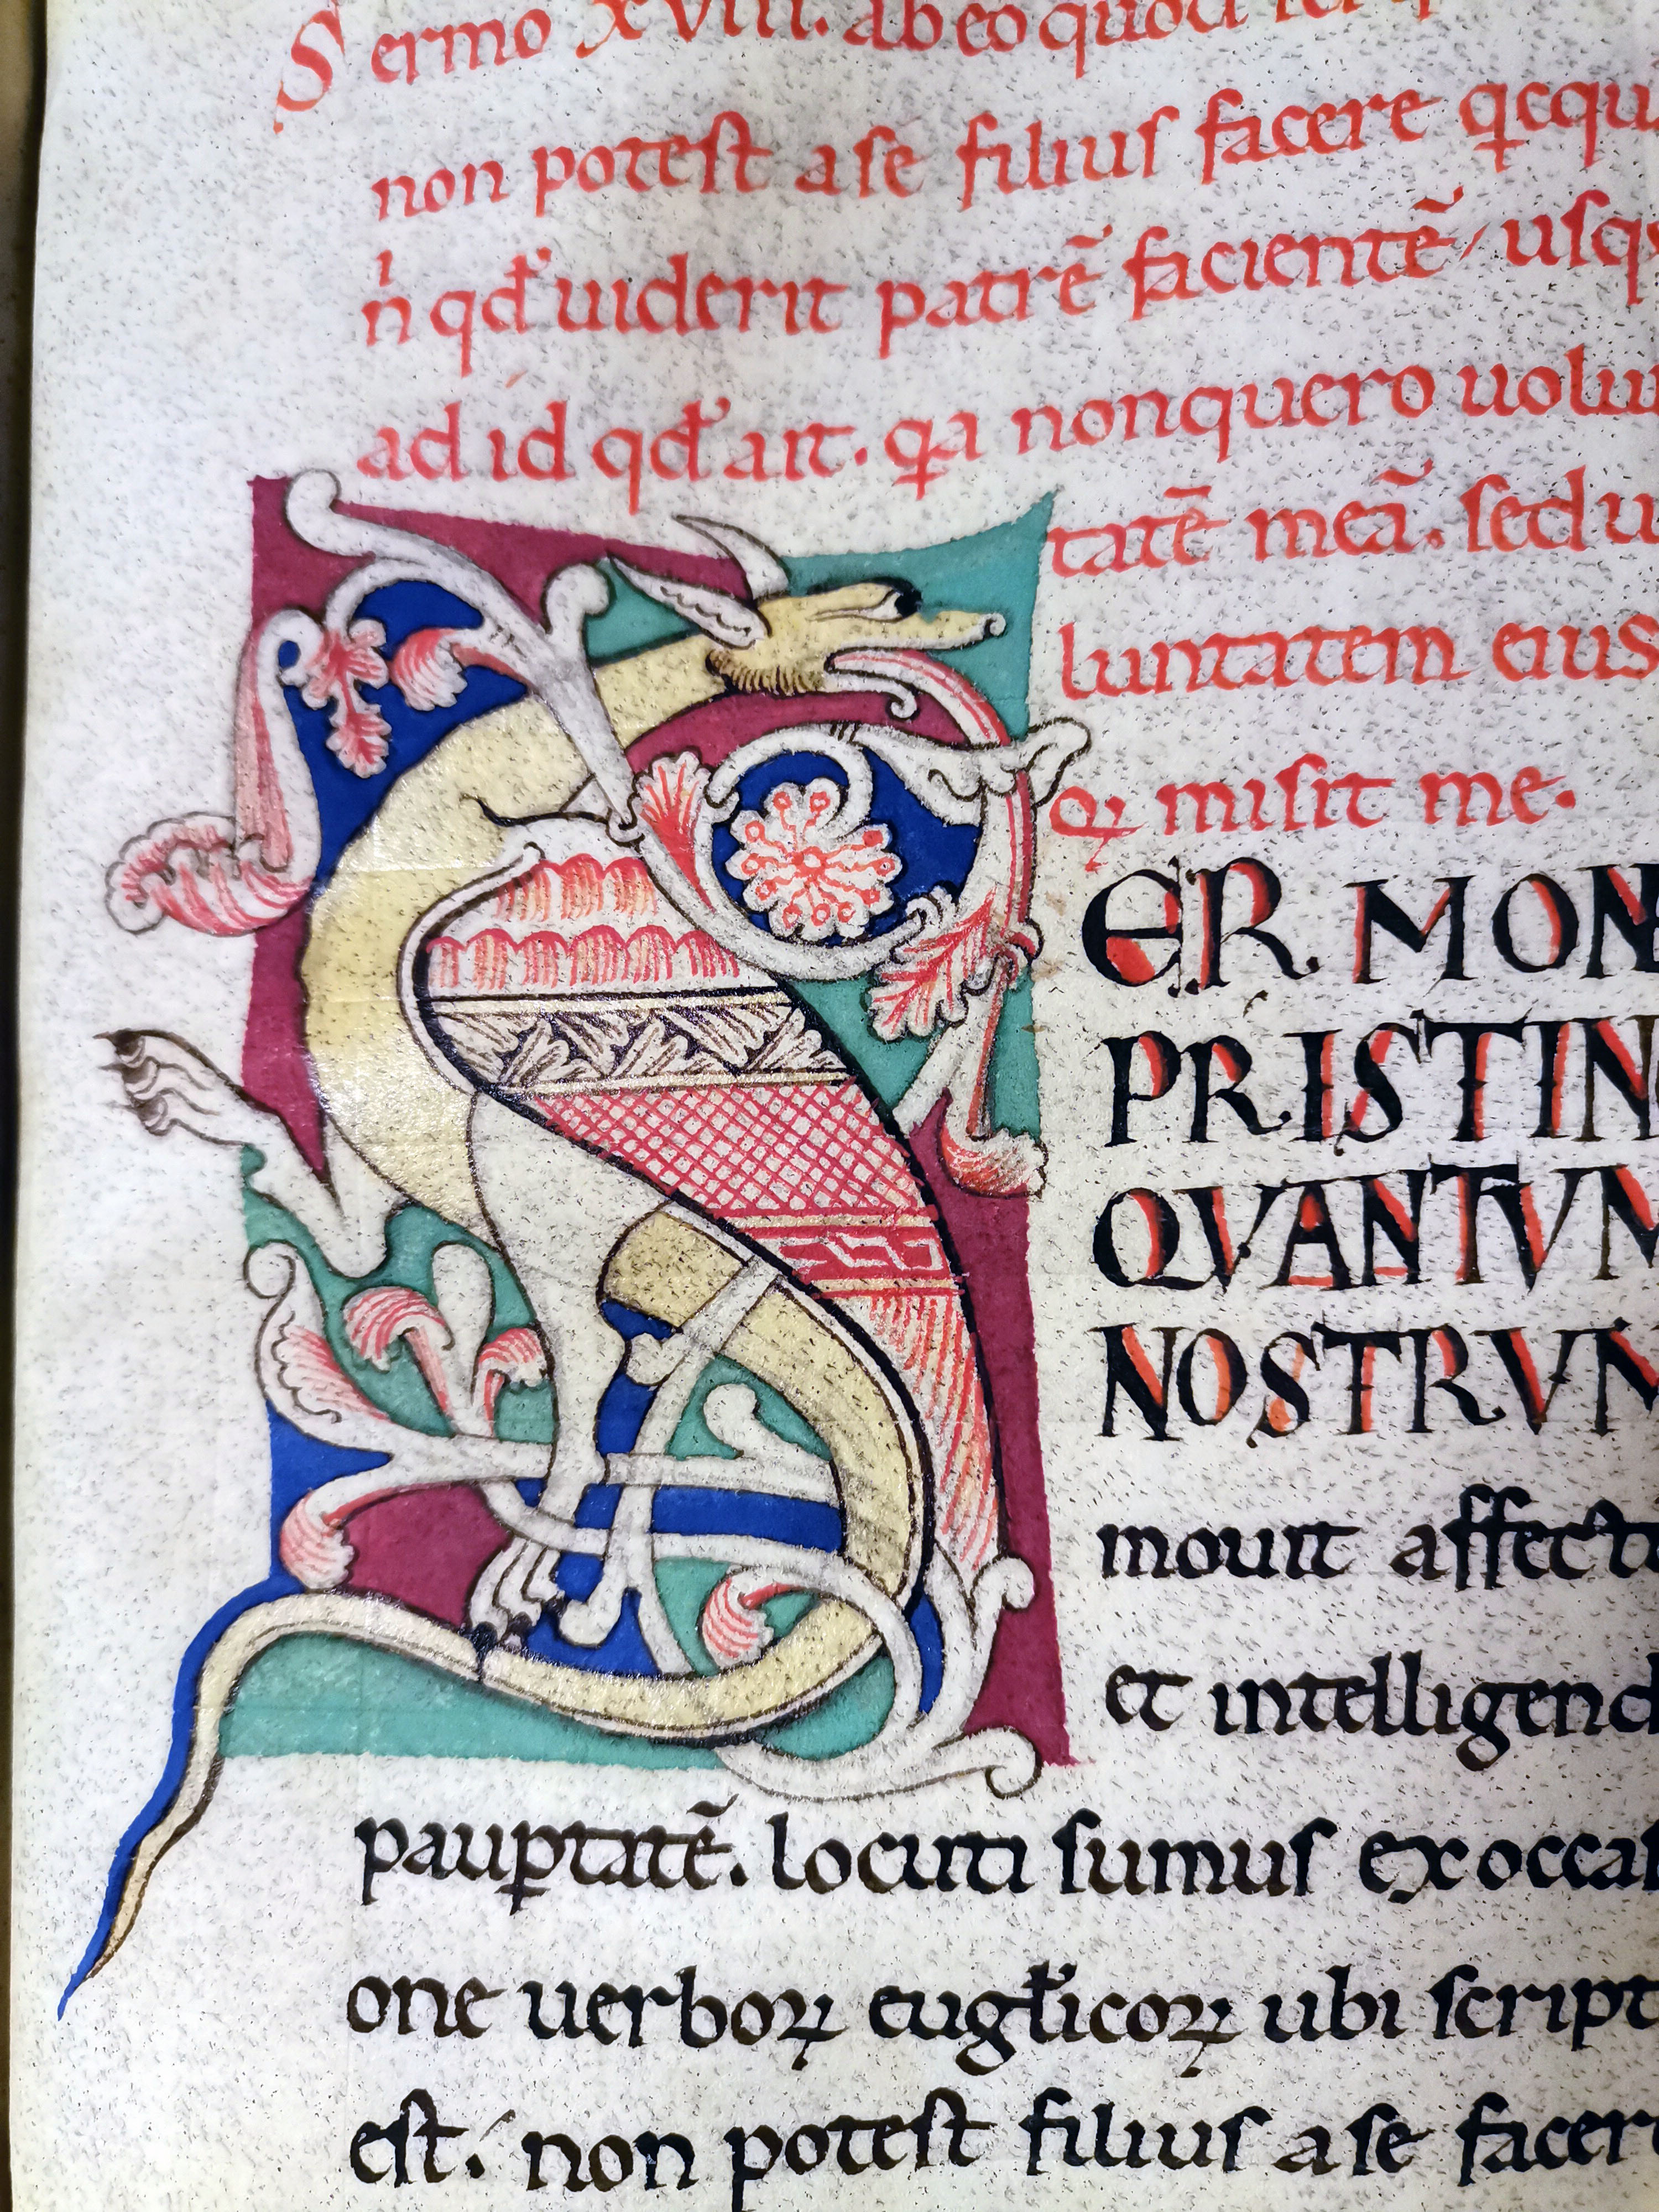 Sermo XVIII. ab eo quod
non potest a se filius facere
n̍ qd̃ uiderit patrē facientē / usq;
ad id qd̃ ait. qa non quero uolu
tatē meã. sed u
luntatem eius
qꝛ misit me.
ERMON
PRISTIN
QVANTVM
NOSTRVM
mouit affectu
et intelligend
pauꝑtatē. locuti sumus ex occas
one uerboꝝ eugl̃icoꝝ ubi script
est. non potest filius a se facer